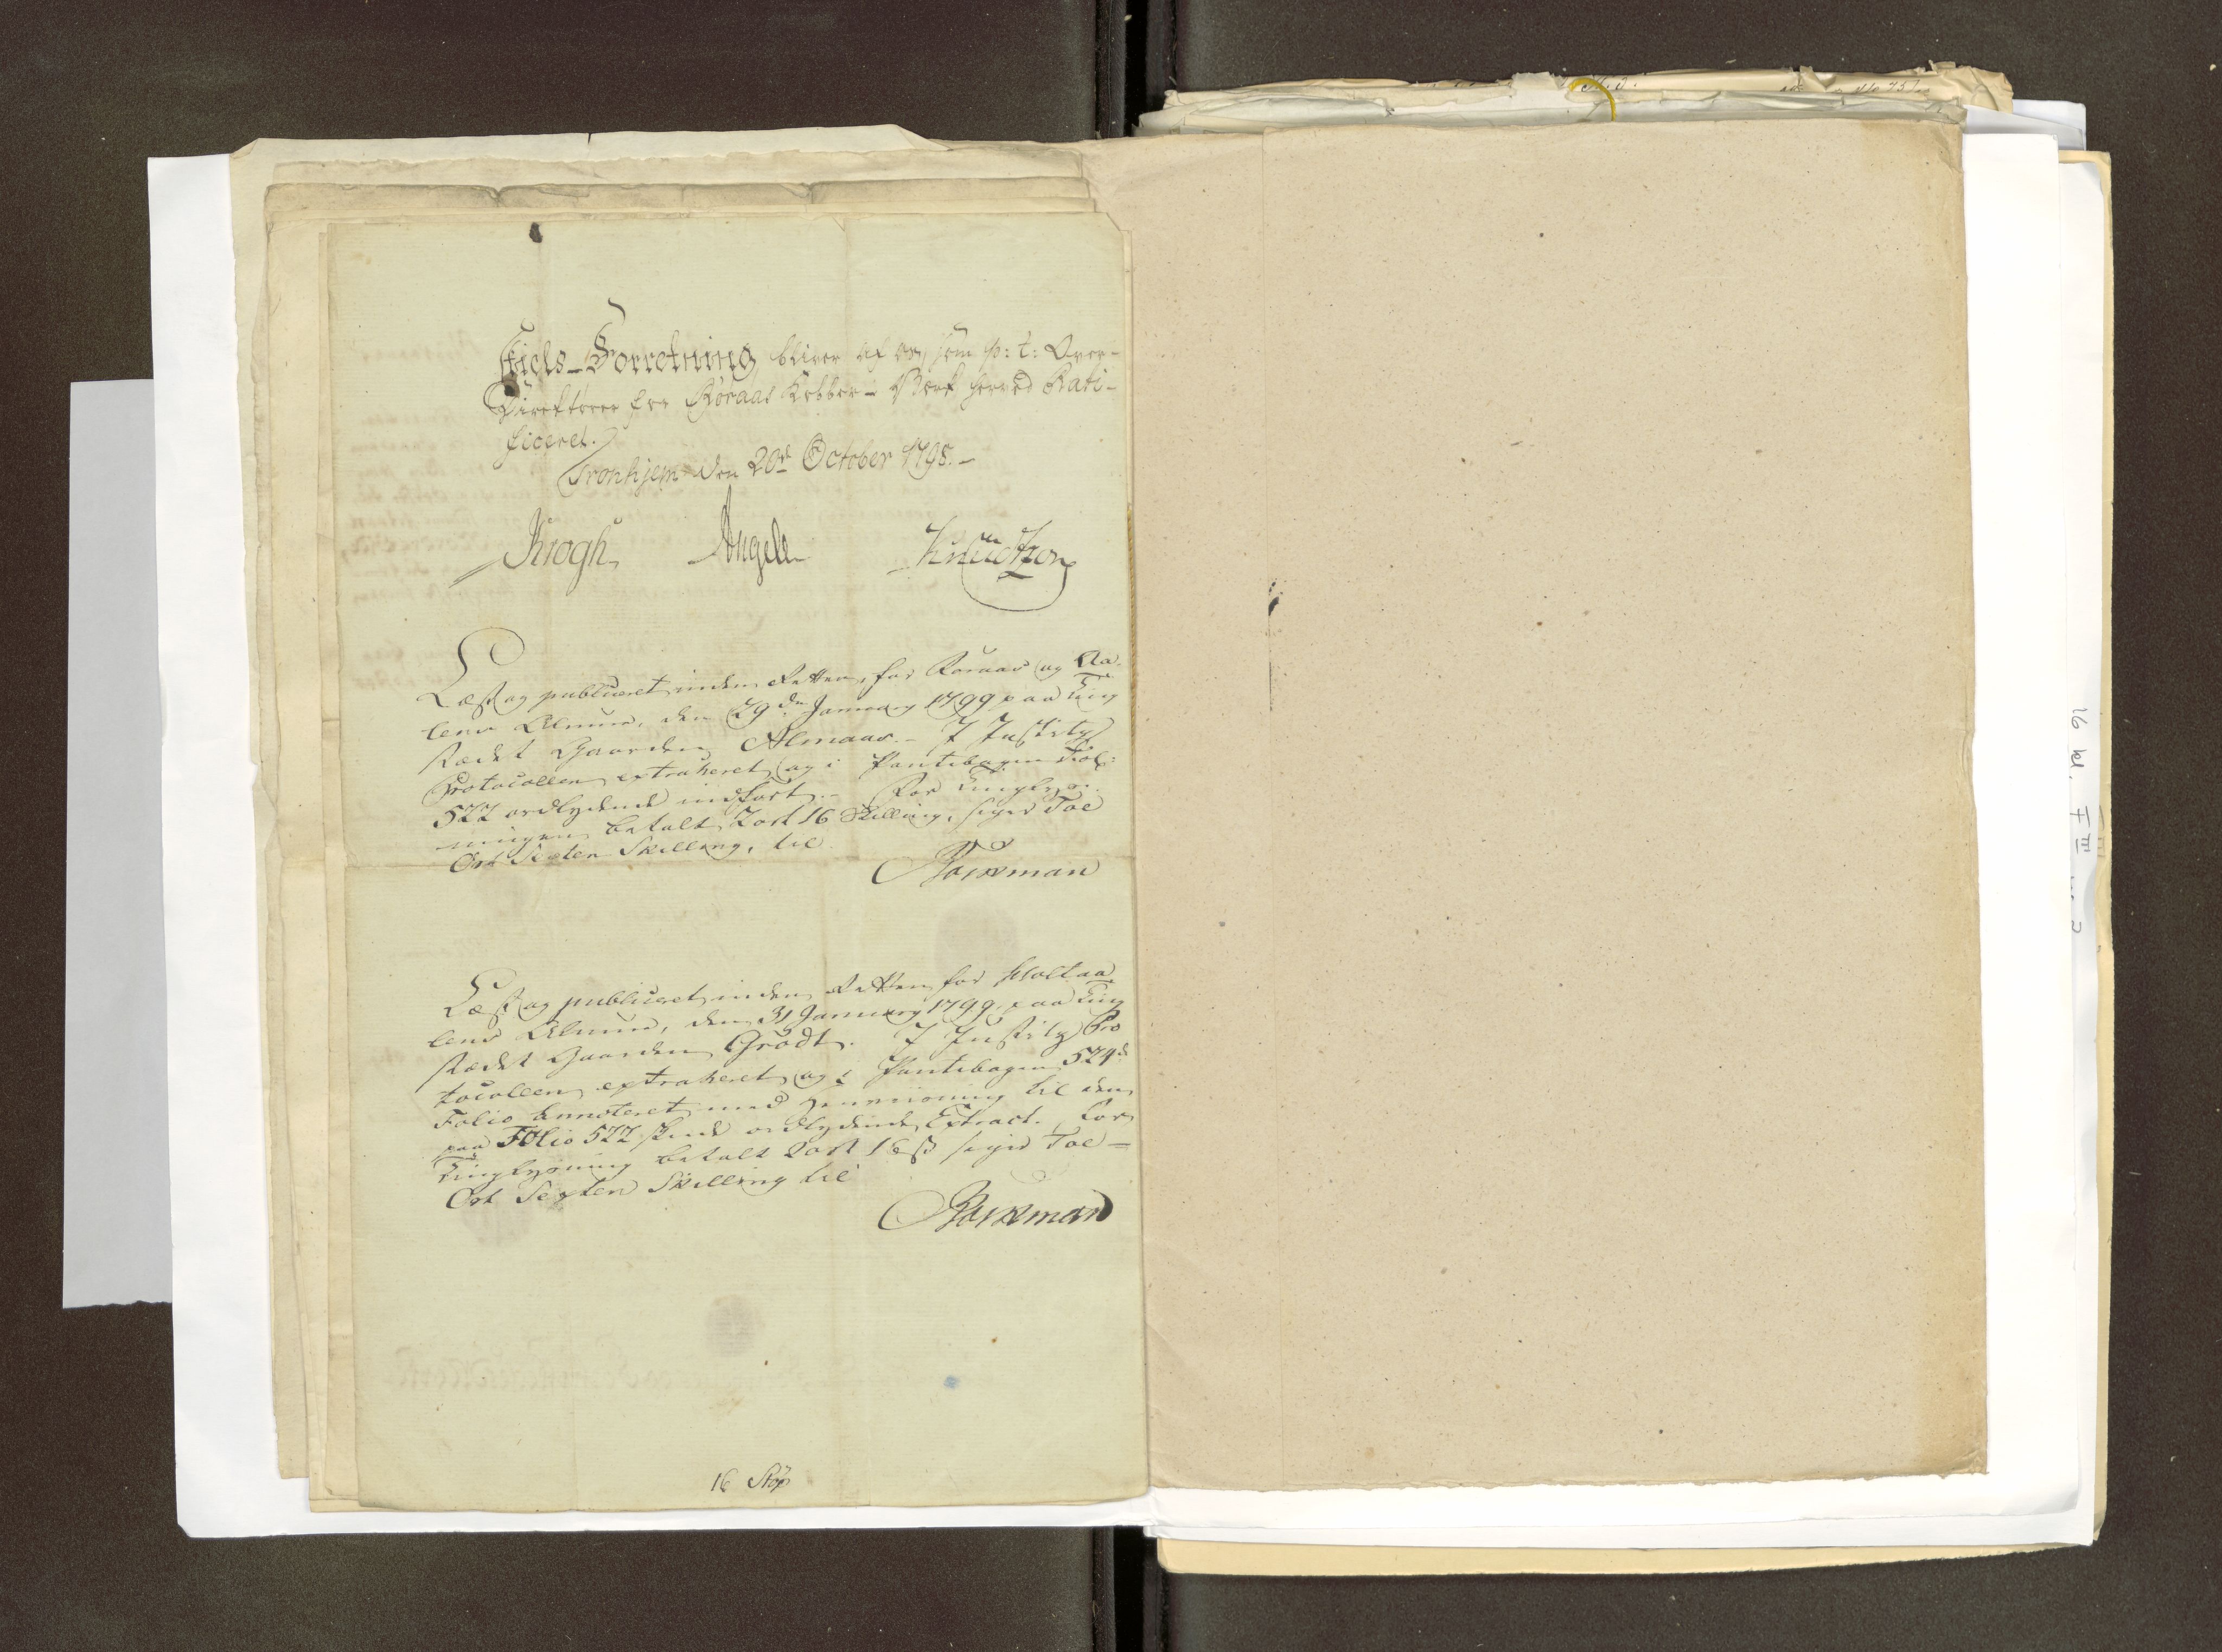 Skiels-Forretning bliver af os, som p: t: Over-
Direkteurer for Røraas Kobber-Værk herved Rati-
ficeret.
Tronhjem den 20de October 1798.-
Krogh Angell Knudtzon
Læst og publiceret inden Retten, for Røraas og Aa-
lens Almue, den 29de January 1799 paa Ting
stædet Gaarden Almaas.- I Justitz
Protocollen extraheret og i Pantebogen Fol:
522 ordlydende indført.- For Tinglys-
ningen betalt 2 ort 16 Skilling, siger Toe
Ort Sexten Skilling, til
Borkman
Læst og publiceret inden Retten for Holtaa-
lens Almue, den 31 January 1799, paa Ting
stædet Gaarden Grødt. I Justitz Pro
tocollen extraheret og i Pantebogen 524de
Folio Annoteret med Henviisning til den
paa Folio 522 skeede ordlydende Extract. For
Tinglysning betalt 2 ort 16 ß siger Toe-
Ort Sexten Skilling til
Borkman
16
16 kl. F III